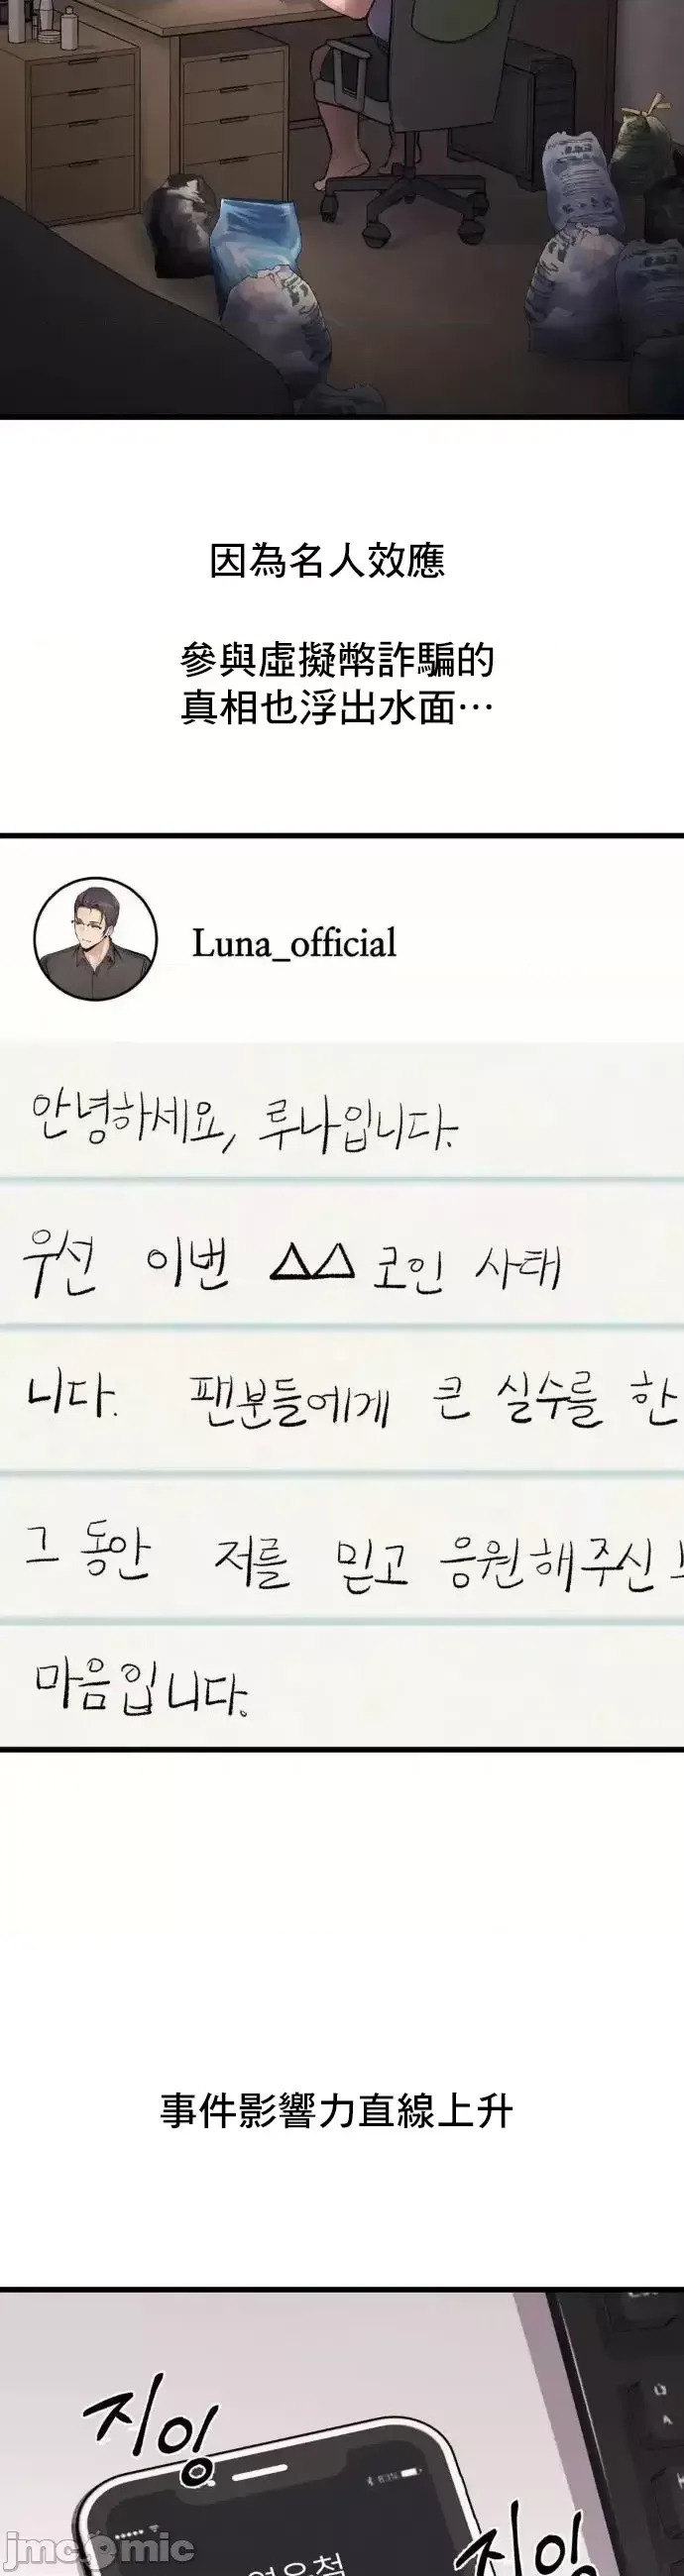 因為名人效應
參與虛擬幣詐騙的
真相也浮出水面…
Luna_official
안녕하세요, 루나입니다.
우선 이번 △△ 코인 사태
니다. 팬분들에게 큰 실수를 한
그 동안 저를 믿고 응원해주신
마음입니다.
事件影響力直線上升
지잉
83%
지잉
jmcomic